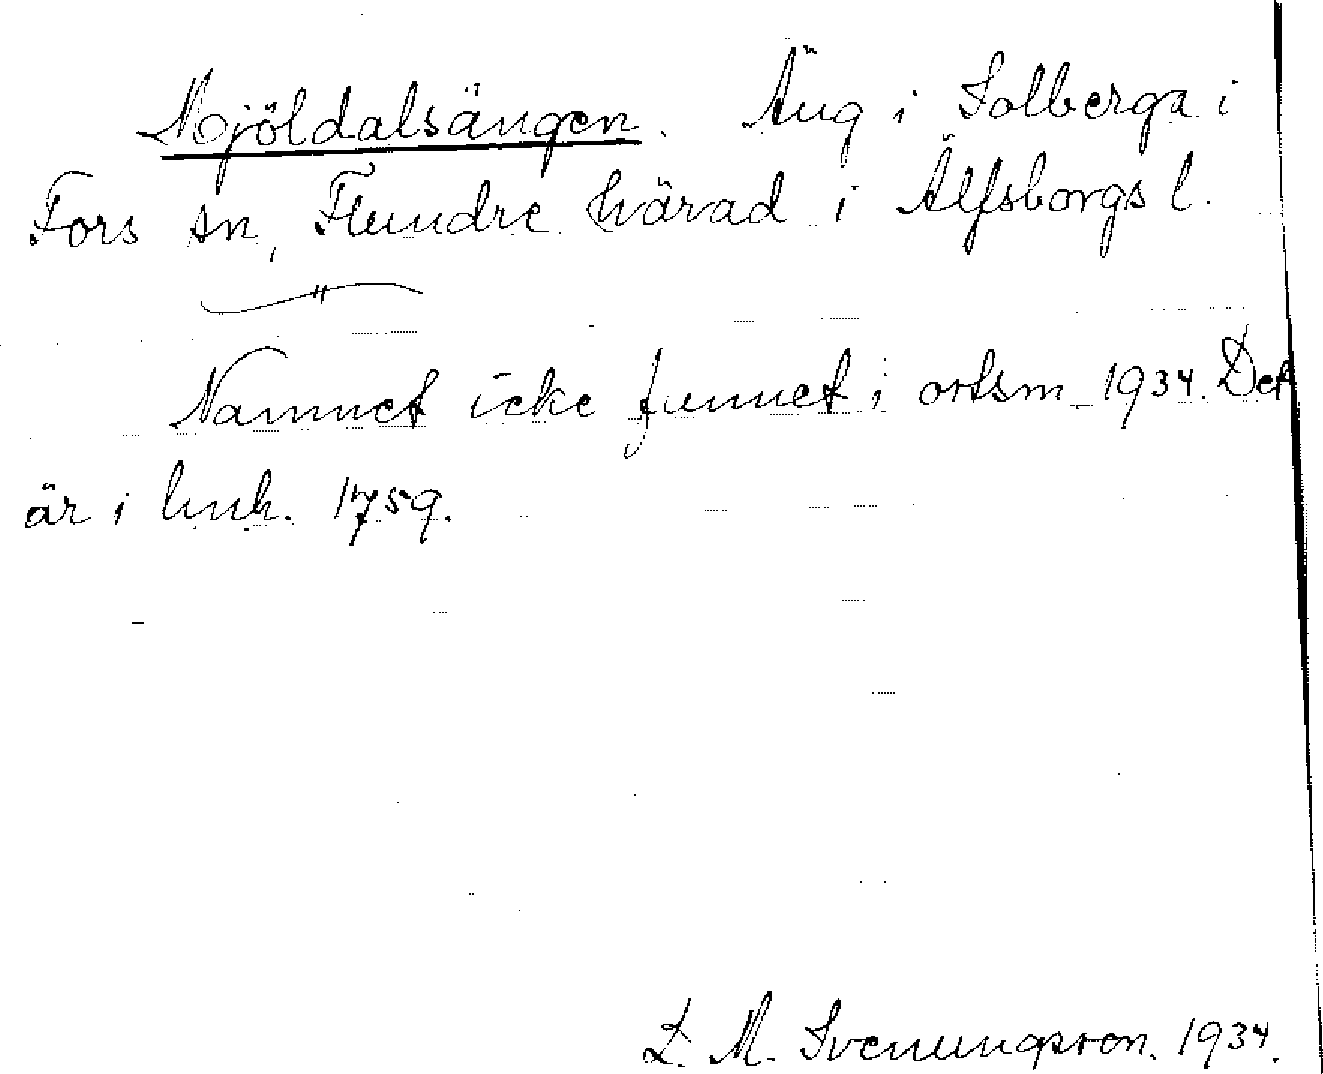 Mjöldalsängen. Äng i Solberga i
Fors sn, Flundre härad i Älfsborgs l.
"
Namnet icke funnet i ortsm 1934. Det
är i hnh. 1759.
L. M. Svenungsson. 1934.